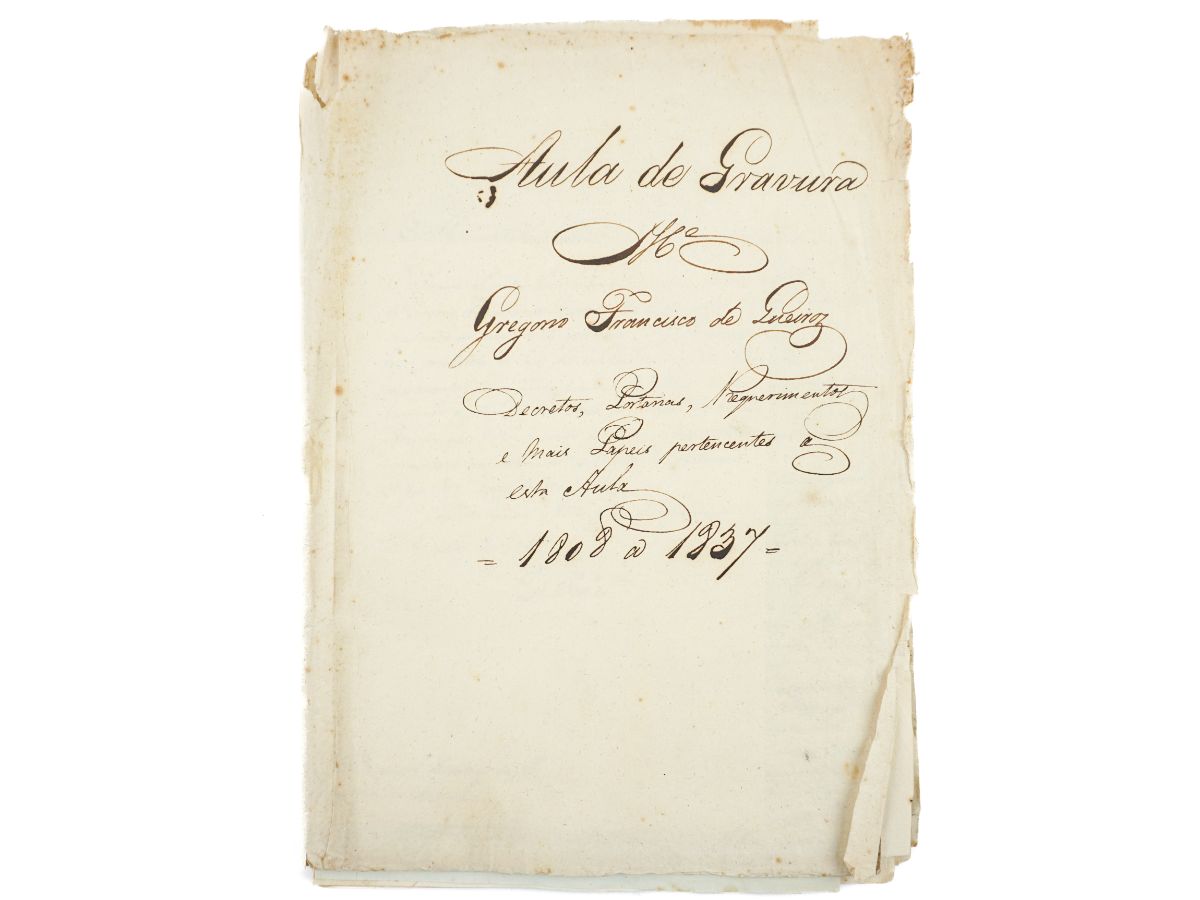 Aula de Gravura
M.e
Gregorio Francisco de Queiroz
Decretos, Portarias, Requerimentos
e Mais Papeis pertencentes a
esta Aula
= 1808 a 1837 =